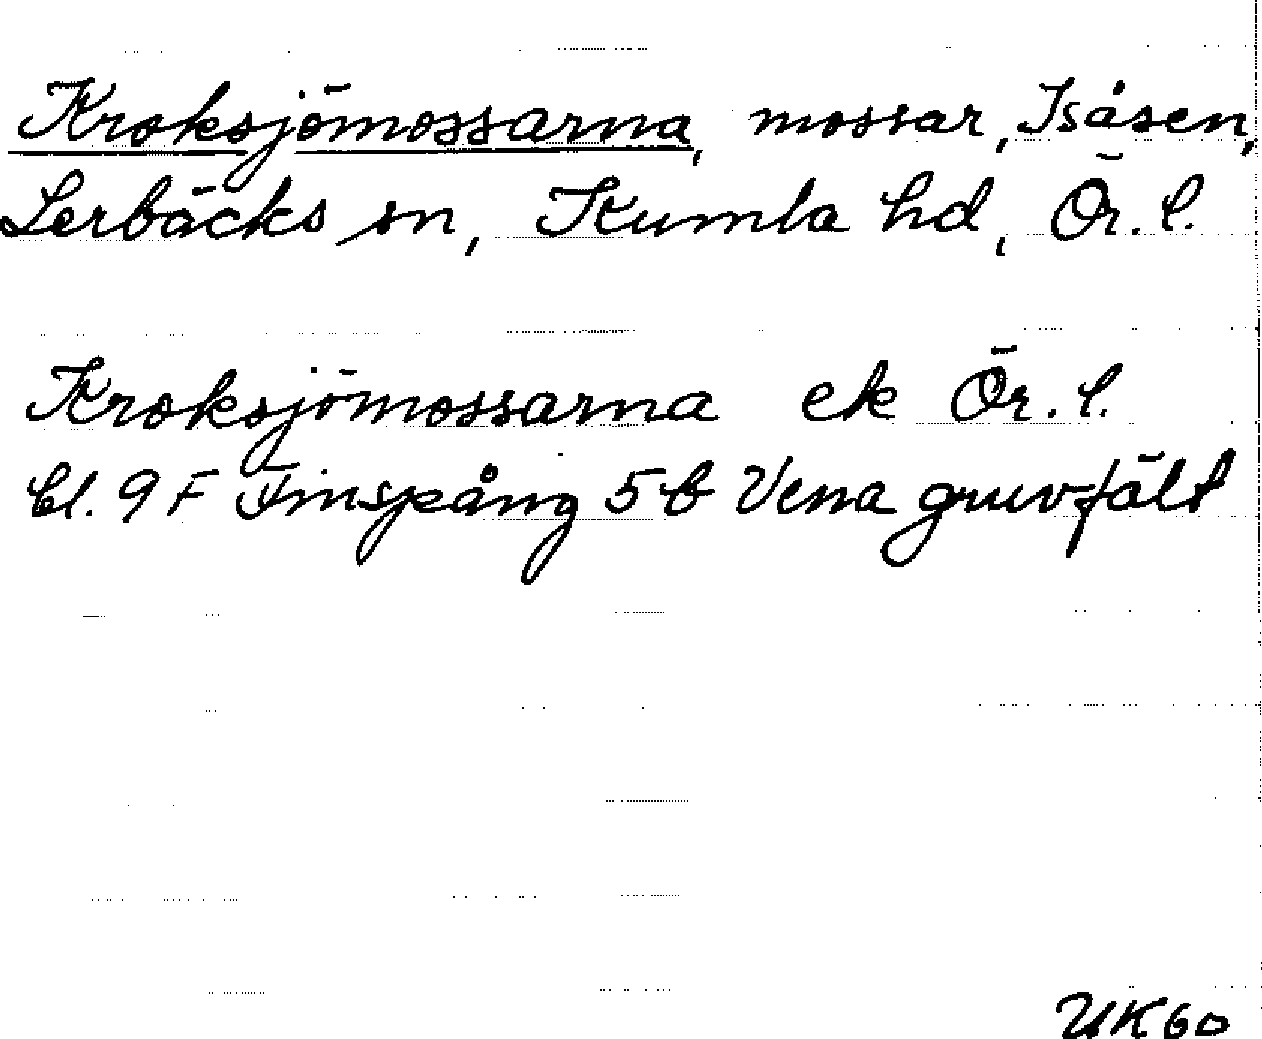 Kroksjömossarna, mossar, Isåsen,
Lerbäcks sn, Kumla hd, Ör. l.
Kroksjömossarna ek Ör. l.
bl. 9 F Finspång 5 b Vena gruvfält
UK60